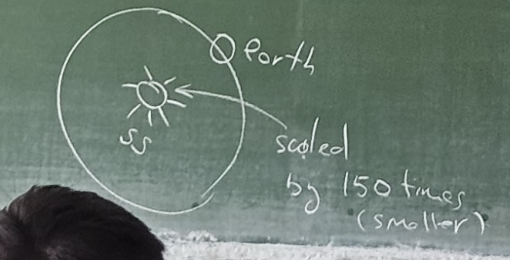 Earth
SS
scaled
by 150 times
(smaller)